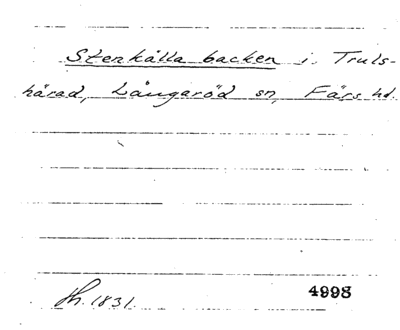 Stenkälla backen i. Truls-
härad, Långaröd sn, Färs hd.
Th. 1831.
4998